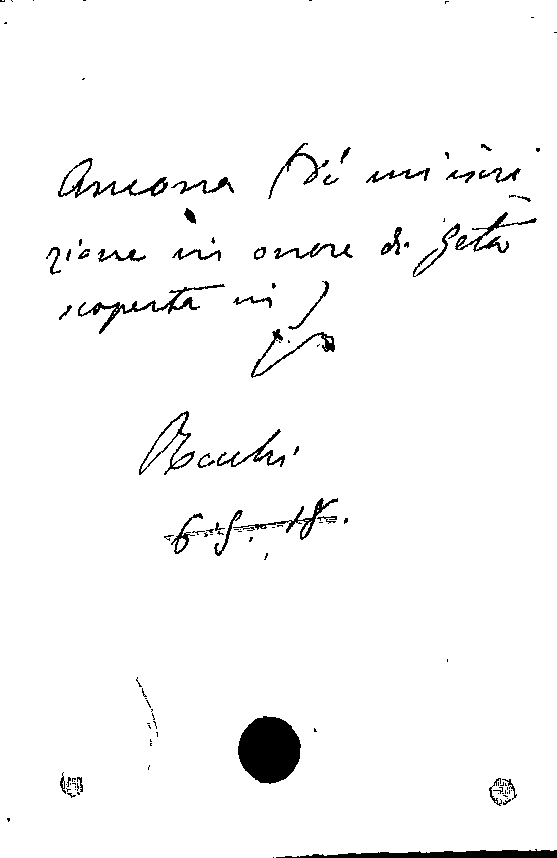 Ancona (Di un'iscri
zione in onore di Geta
scoperta in)
Rocchi
6 S. 18.